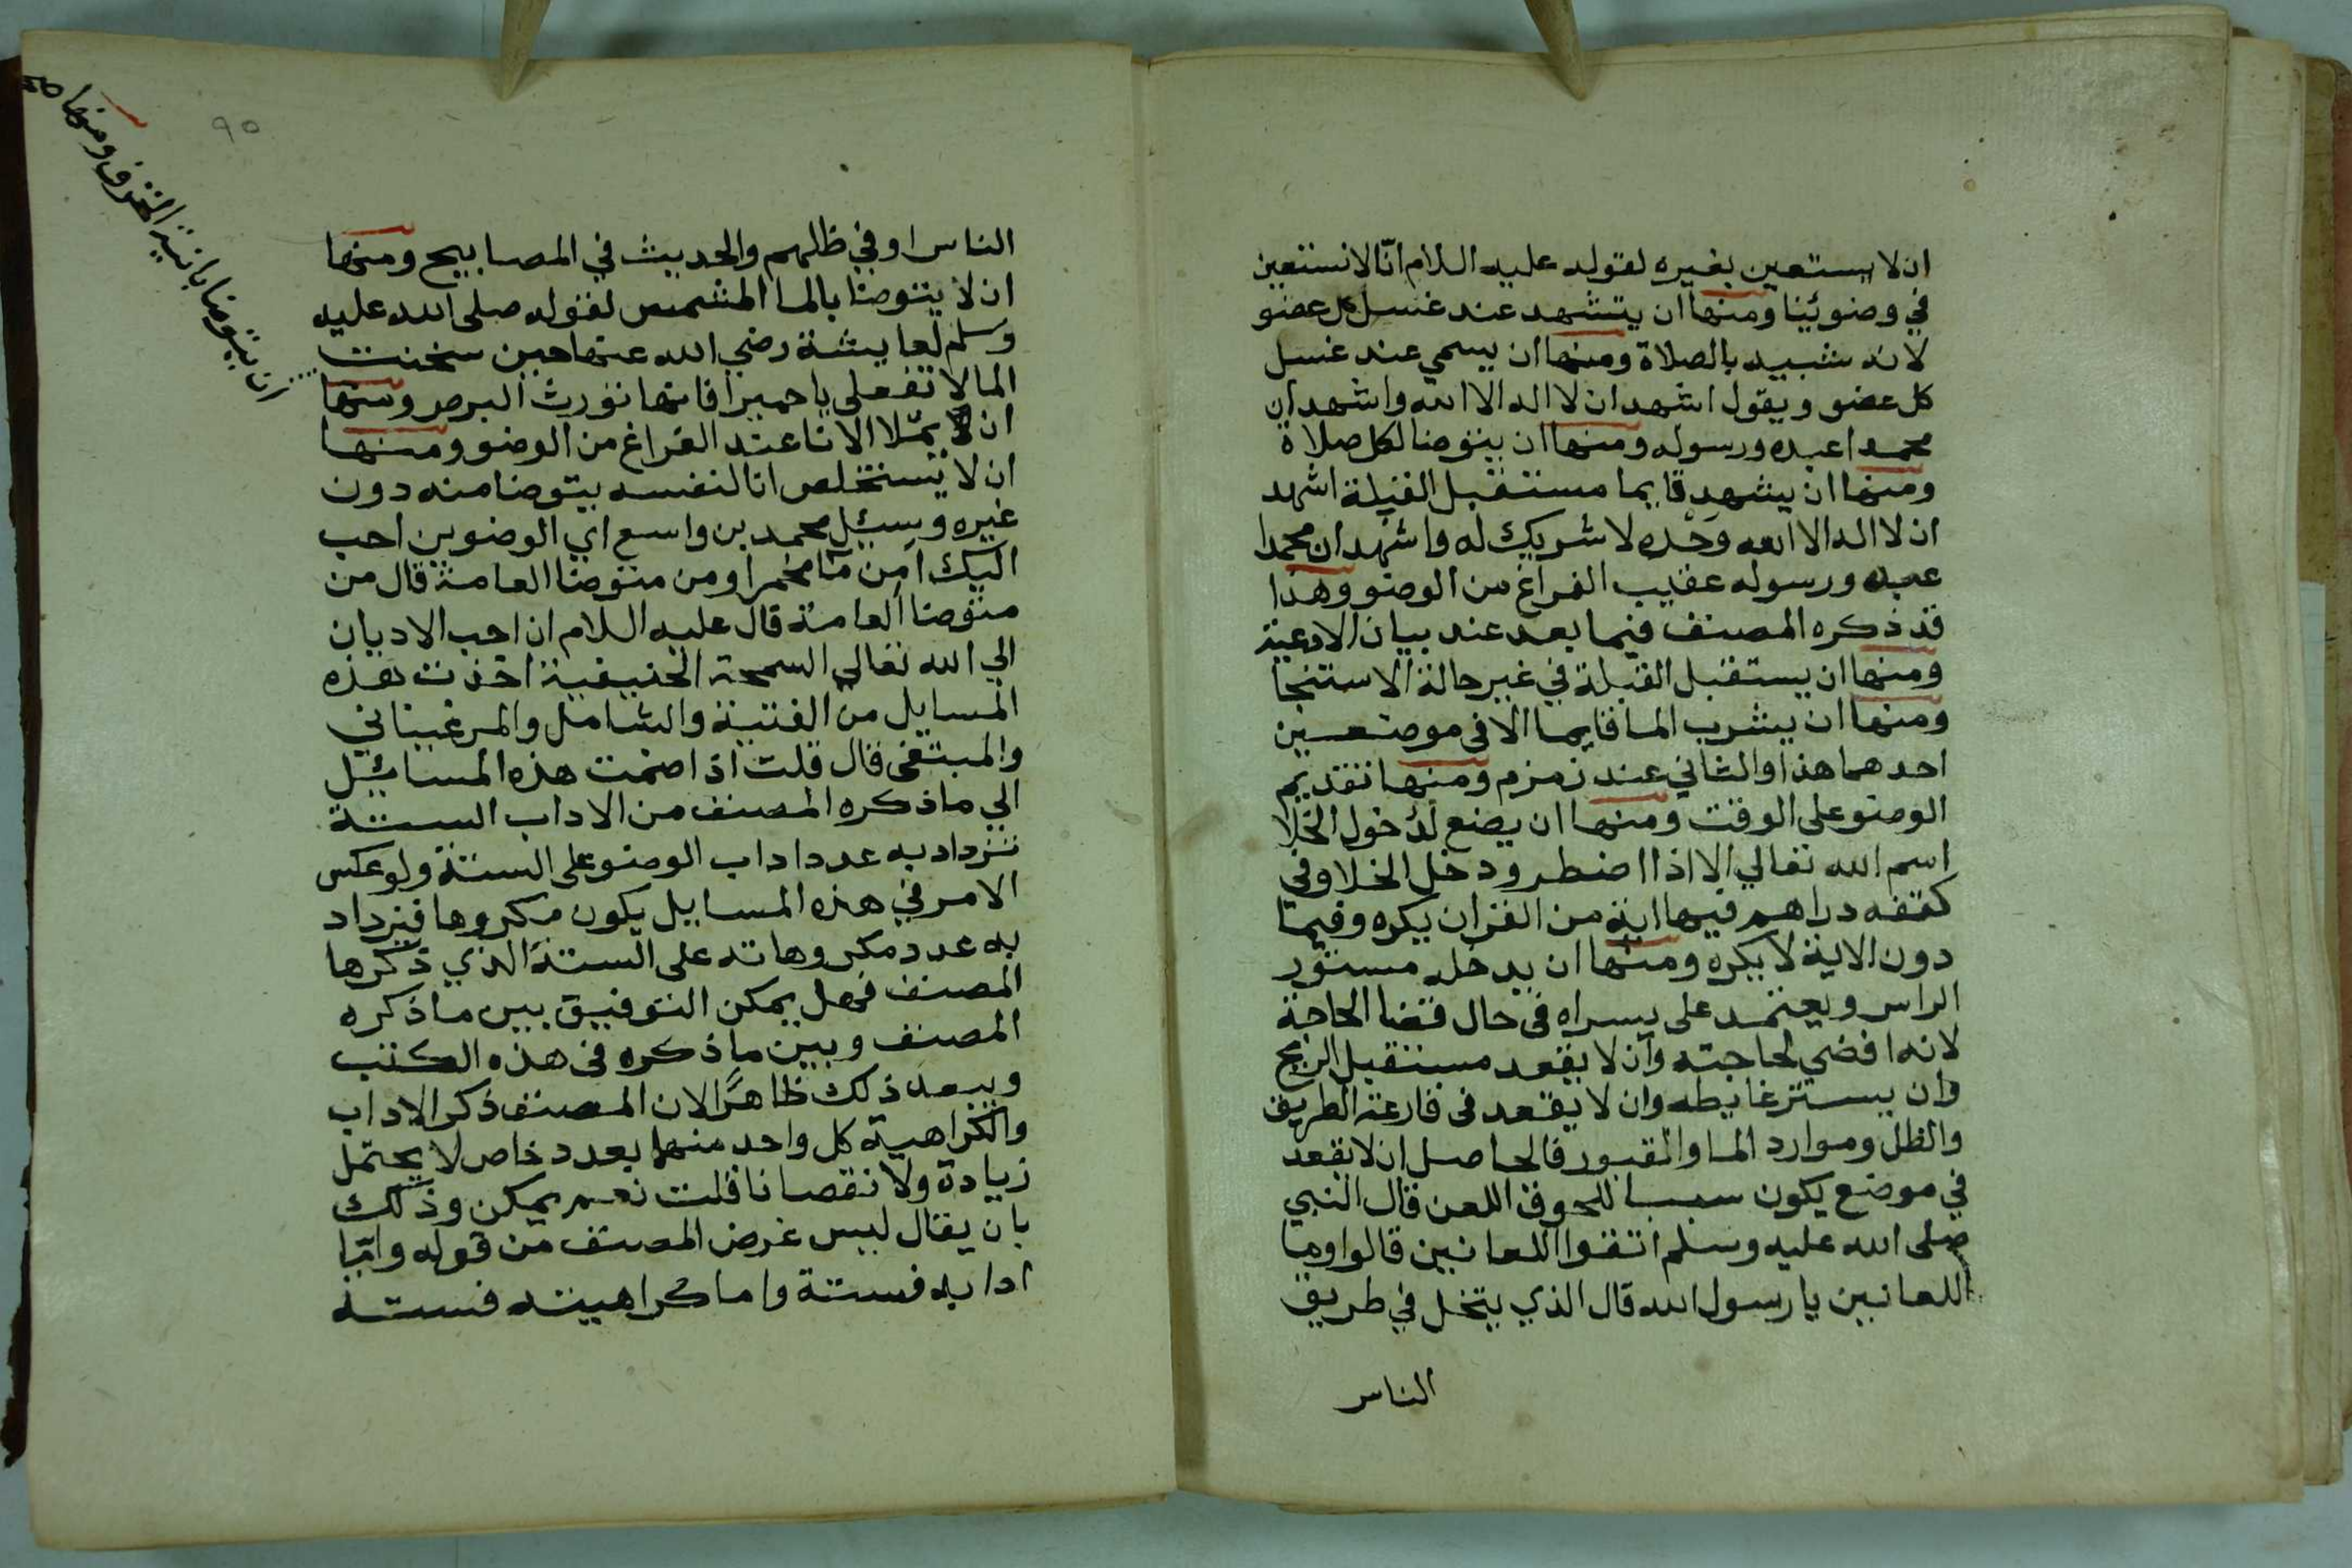 ان لا يستعين بغيره لقوله عليه السلام انّا لا نستعين
في وضوئينا ومنها ان يتشهد عند غسل كل عضو
لانه شبيه بالصلاة ومنها ان يسمي عند غسل
كل عضو ويقول اشهد ان لا اله الا الله واشهد ان
محمدا عبده ورسوله ومنها ان يتوضا لكل صلاة
ومنها ان يشهد قايما مستقبل القبلة اشهد
ان لا اله الا الله وحده لا شريك له واشهد ان محمدا
عبده ورسوله عقيب الفراغ من الوضو وهذا
قد ذكره المصنف فيما بعد عند بيان الادعية
ومنها ان يستقبل القبلة في غير حالة الاستنجا
ومنها ان يشرب الما قايما الا في موضعين
احدهما هذا والثاني عند زمزم ومنها تقديم
الوضو على الوقت ومنها ان يضع لدخول الخلا
اسم الله تعالي الا اذا اضطر ودخل الخلا وفي
كفه دراهم فيها اية من القران يكره وفيما
دون الاية لا يكره ومنها ان يدخله مستور
الراس ويعتمد على يسراه في حال قضا الحاجة
لانه افضي لحاجته وان لا يقعد مستقبل الريح
وان يستر غايطه وان لا يقعد في قارعة الطريق
والظل وموارد الما والقبور فالحاصل ان لا يقعد
في موضع يكون سببا للحوق اللعن قال النبي
صلى الله عليه وسلم اتقوا اللعانين قالوا وما
اللعانين يا رسول الله قال الذي يتخل في طريق
الناس
٩٥
الناس او في ظلهم والحديث في المصابيح ومنها
ان لا يتوضا بالما المشمس لقوله صلى الله عليه
وسلم لعايشة رضي الله عنها حين سخنت
الما لا تفعلي يا حميرا فانها تورث البرص ومنها
ان يملا الانا عند الفراغ من الوضو ومنها
ان لا يستخلص انا لنفسه يتوضا منه دون
غيره وسئيل محمد بن واسع اي الوضوين احب
اليك امن ما مخمر او من متوضا العامة قال من
متوضا العامة قال عليه السلام ان احب الاديان
الي الله تعالى السمحة الحنيفية اخذت هذه
المسايل من القنية والشامل والمرغيناني
والمبتغى فان قلت اذا اضمت هذه المسائيل
الي ما ذكره المصنف من الاداب الستة
تزداد به عدد اداب الوضو على الستة ولو عكس
الامر في هذه المسايل يكون مكروها فيزداد
به عدد مكروهاته على الستة الذي ذكرها
المصنف فهل يمكن التوفيق بين ما ذكره
المصنف وبين ما ذكره في هذه الكتب
ويبعد ذلك ظاهرًا لان المصنف ذكر الاداب
والكراهية كل واحد منهما بعدد خاص لا يحتمل
زيادة ولا نقصانا قلت نعم يمكن وذلك
بان يقال ليس غرض المصنف من قوله وامّا
ادابه فستة واما كراهيته فستة
ان يتوضا بانية الخزف ومنها صح